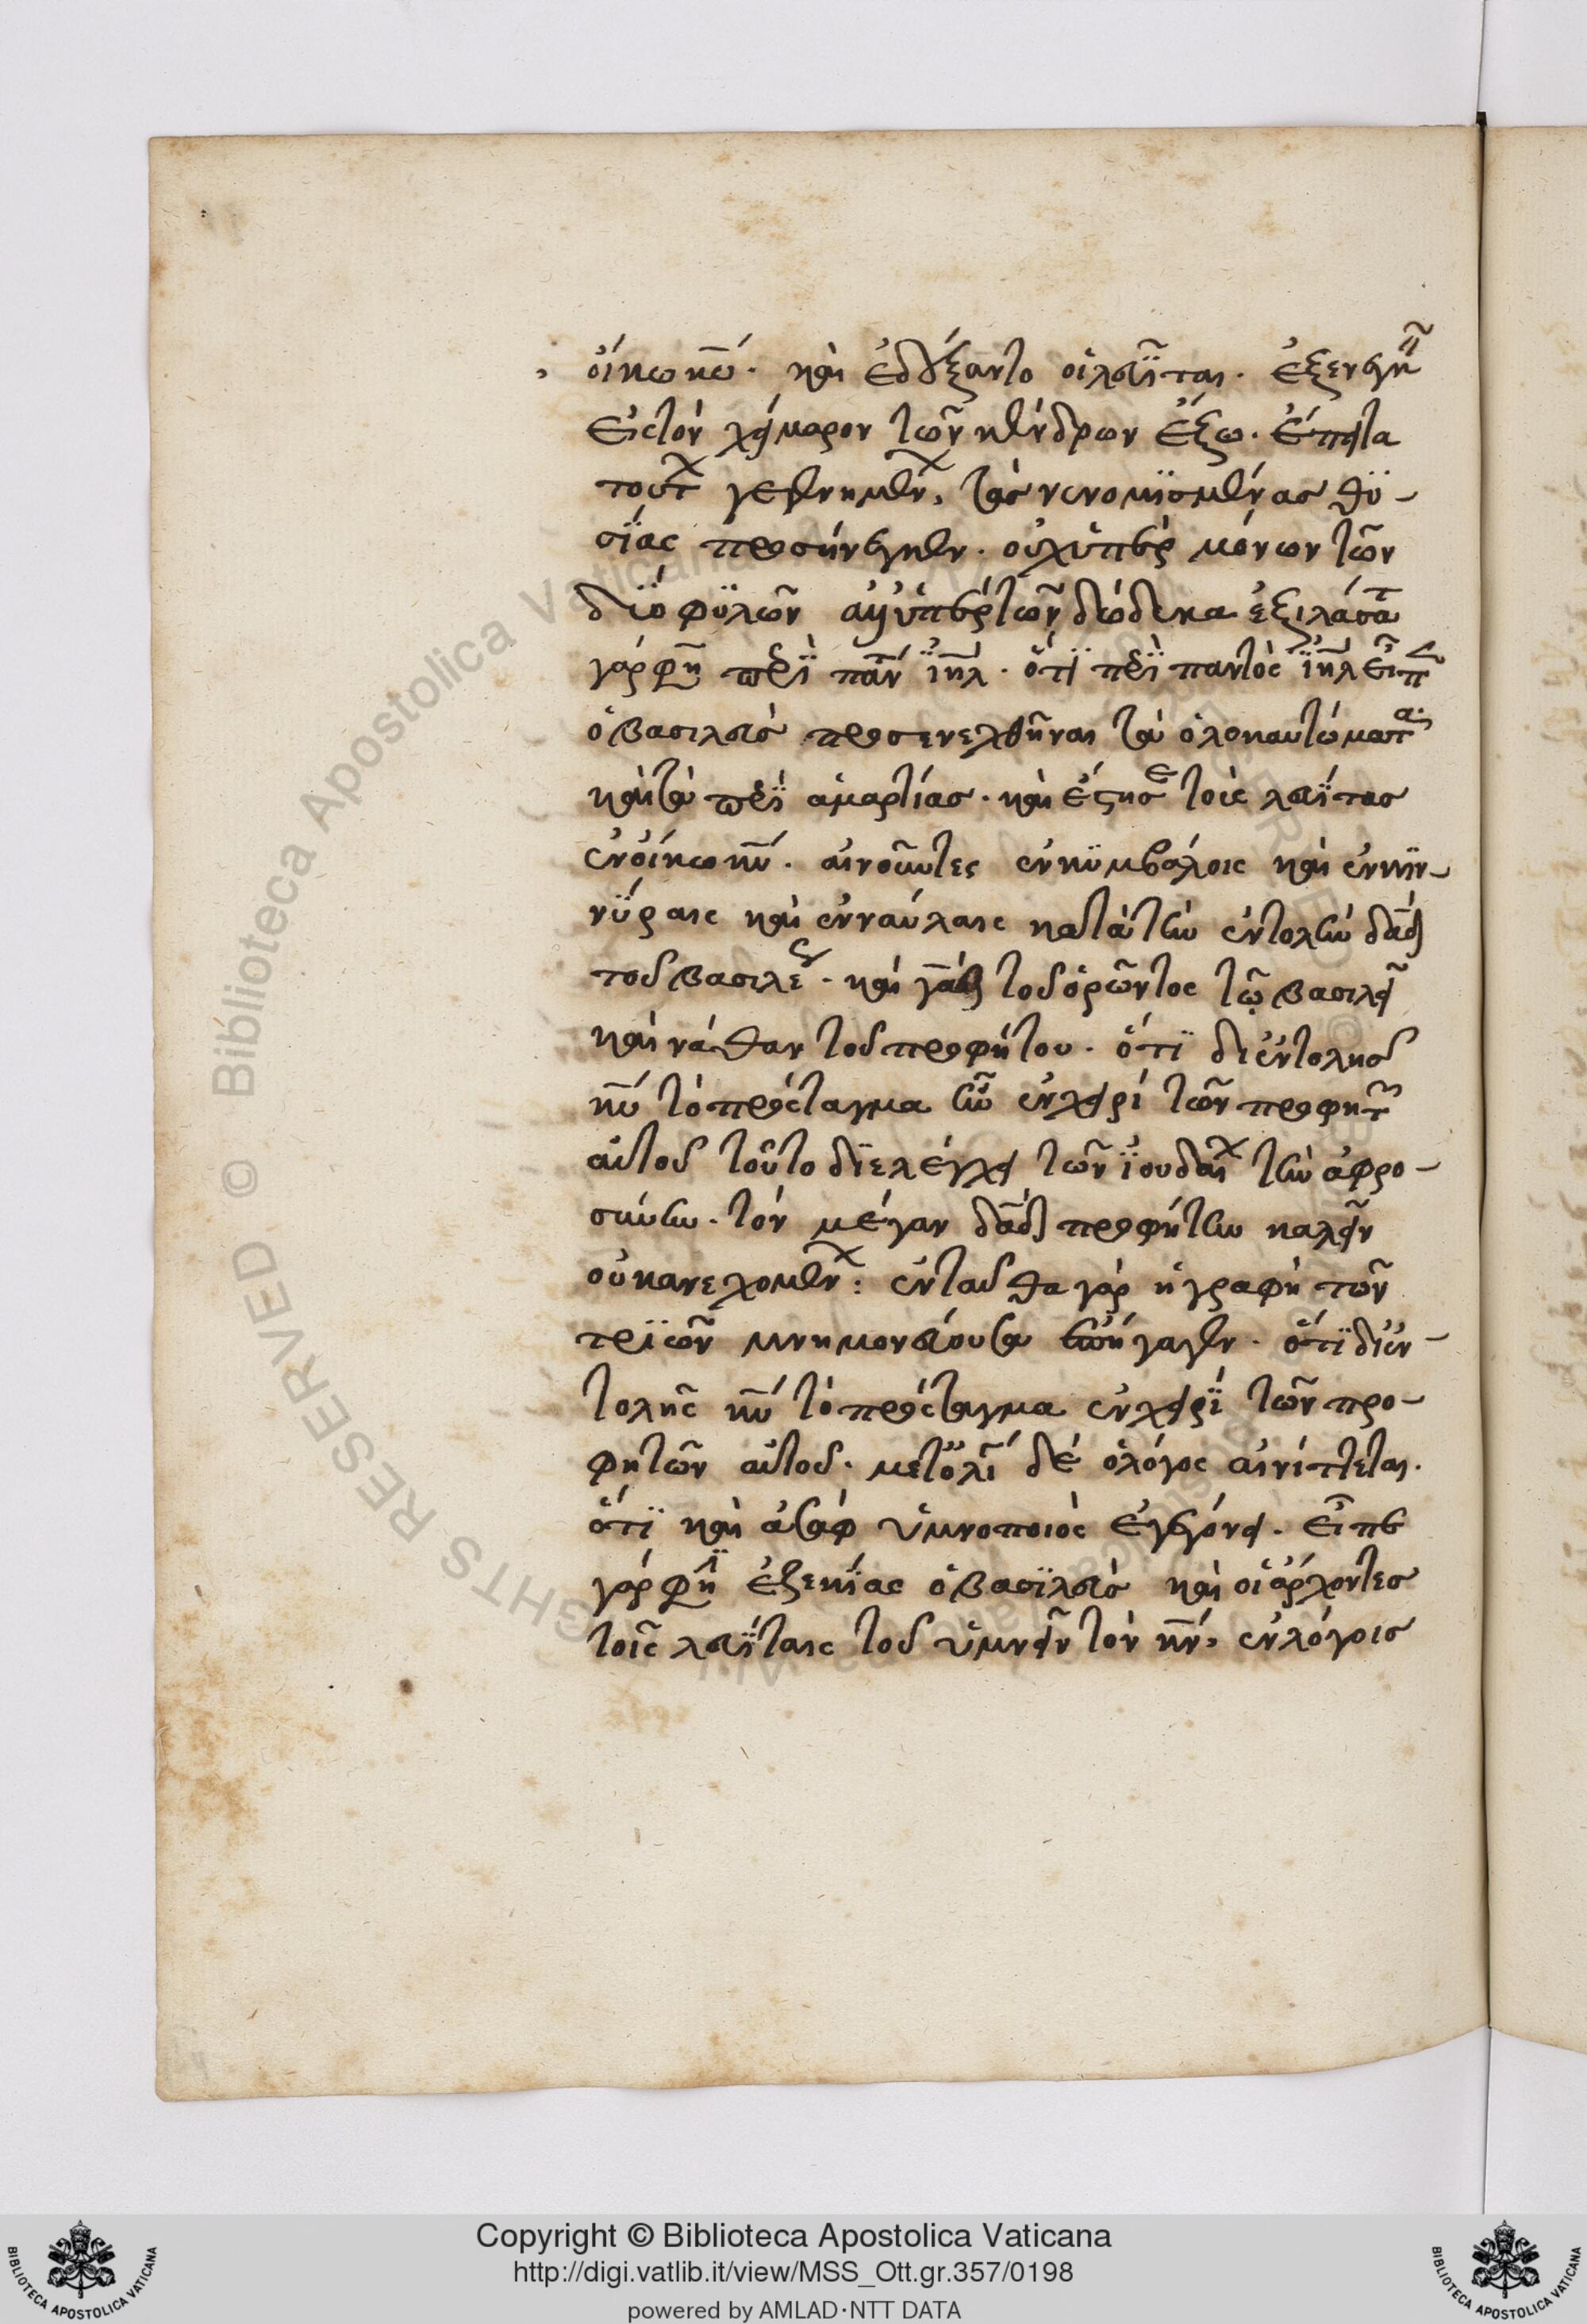 οἴκω κῶ. καὶ ἐδέξαντο οἱ λευῖται. ἐξενεγκεῖν
εἰς τὸν χείμαρον τῶν κέδρων ἔξω. ἔπειτα
τούτων γεγενημένων, τὰς νενομϊσμένας θϋ-
σΐας προσήνεγκεν. οὐχ ὑπὲρ μόνων τῶν
δΰο φϋλῶν ἀλλ' ὑπὲρ τῶν δώδεκα ἐξιλάσατο
γάρ φη περὶ παντ ιηλ. ὅτϊ περὶ παντὸς ιηλ εἶπεν
ὁ βασιλεὺς προσενεχθῆναι τὰ ὁλοκαυτώματα
καὶ τὰ περὶ ἁμαρτίας. καὶ ἔστησε τοὺς λευΐτας
ἐν οἴκω κυ. αἰνοῦντες ἐν κϋμβάλοις καὶ ἐν κϊν-
νΰραις καὶ ἐν ναύλαις κατὰ τὴν ἐντολὴν δαδ
τοῦ βασιλέως. καὶ γὰδ τοῦ ὁρῶντος τῷ βασιλεῖ
καὶ νάθαν τοῦ προφήτου. ὅτϊ δι ἐντολῆς
κυ τὸ πρόσταγμα ἦν ἐν χειρὶ τῶν προφητῶν
αὐτοῦ τοῦτο δϊελέγχει τῶν ϊουδαίων τὴν ἀφρο-
σύνην. τὸν μέγαν δαδ προφήτην καλεῖν
οὐκ ἀνεχομένων: ἐνταῦθα γὰρ ἡ γραφὴ τῶν
τρϊῶν μνημονεύουσα ἐπήγαγεν. ὅτϊ δι ἐν-
τολῆς κυ τὸ πρόσταγμα ἐν χειρΐ τῶν προ-
φητῶν αὐτοῦ. μετ ὀλί δέ ὁ λόγος αἰνίττεται.
ὅτϊ καὶ ἀσὰφ ὑμνοποιὸς ἐγεγόνει. εἶπε
γάρ φη ἐξεκΐας ὁ βασϊλεὺς καὶ οἱ ἄρχοντες
τοῖς λευΐταις τοῦ ὑμνεῖν τὸν κν, ἐν λόγοις
Copyright © Biblioteca Apostolica Vaticana
http://digi.vatlib.it/view/MSS_Ott.gr.357/0198
powered by AMLAD·NTT DATA